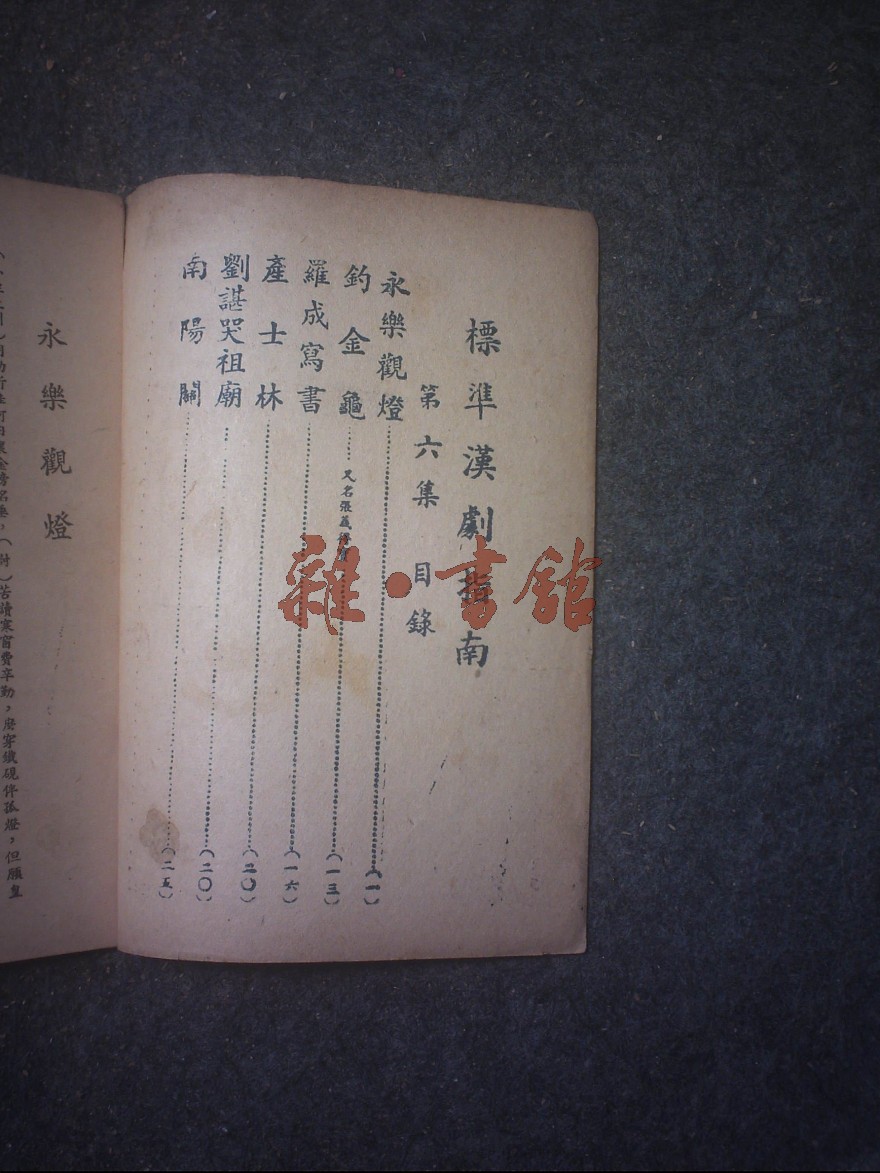 標準漢劇指南
第六集 目錄
永樂觀燈……(一)
釣金龜……又名張義得寶……(一三)
羅成寫書……(一六)
產士林……(二〇)
劉諶哭祖廟……(二〇)
南陽關……(二五)
永樂觀燈
苦讀寒窗費辛勤，磨穿鐵硯伴孤燈，但願皇
雜·書館